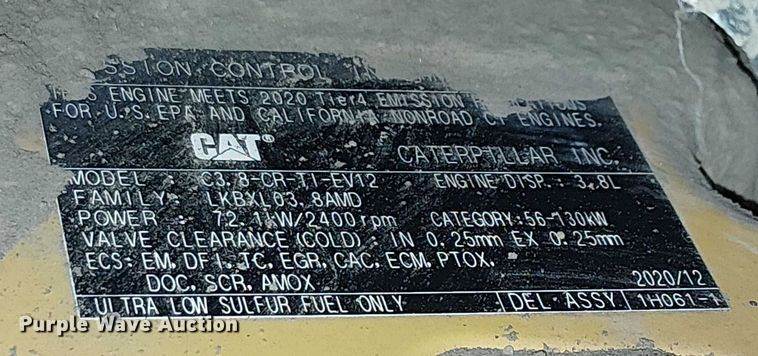 SSION CONTROL
ENGINE MEETS 2020 Tier4 EMISSION
FOR U.S. EPA AND CALIFORNIA NONROAD CI ENGINES.
CAT® CATERPILLAR INC.
MODEL : C3.8-CR-TI-EV12 ENGINE DISP. : 3.8L
FAMILY: LKBXL03.8AMD
POWER : 72.1kW/2400rpm CATEGORY:56-130kW
VALVE CLEARANCE (COLD) : IN 0.25mm EX 0.25mm
ECS: EM, DFI, TC, EGR, CAC, ECM, PTOX,
DOC, SCR, AMOX 2020/12
ULTRA LOW SULFUR FUEL ONLY DEL ASSY 1H061-1
Purple Wave Auction